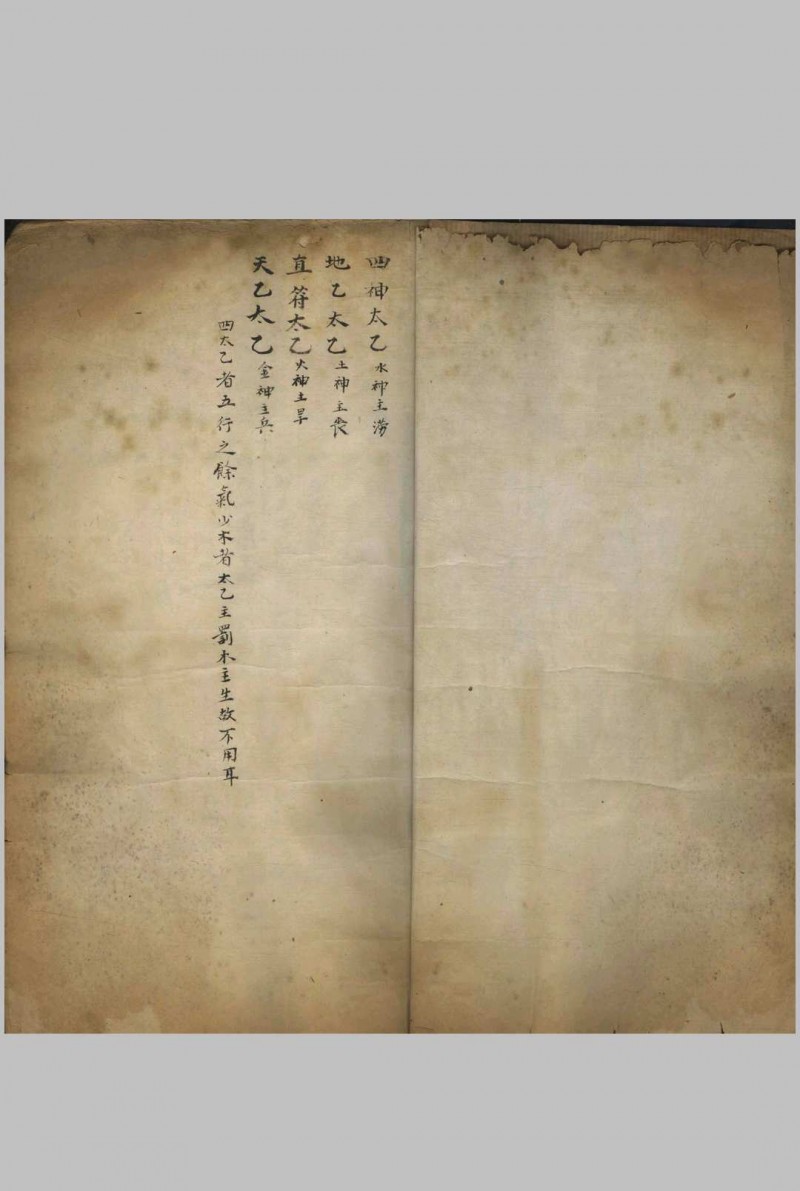 四神太乙水神主澇
地乙太乙土神主喪
直符太乙火神主旱
天乙太乙金神主兵
四太乙者五行之餘氣少木者太乙主罰木主生故不用耳